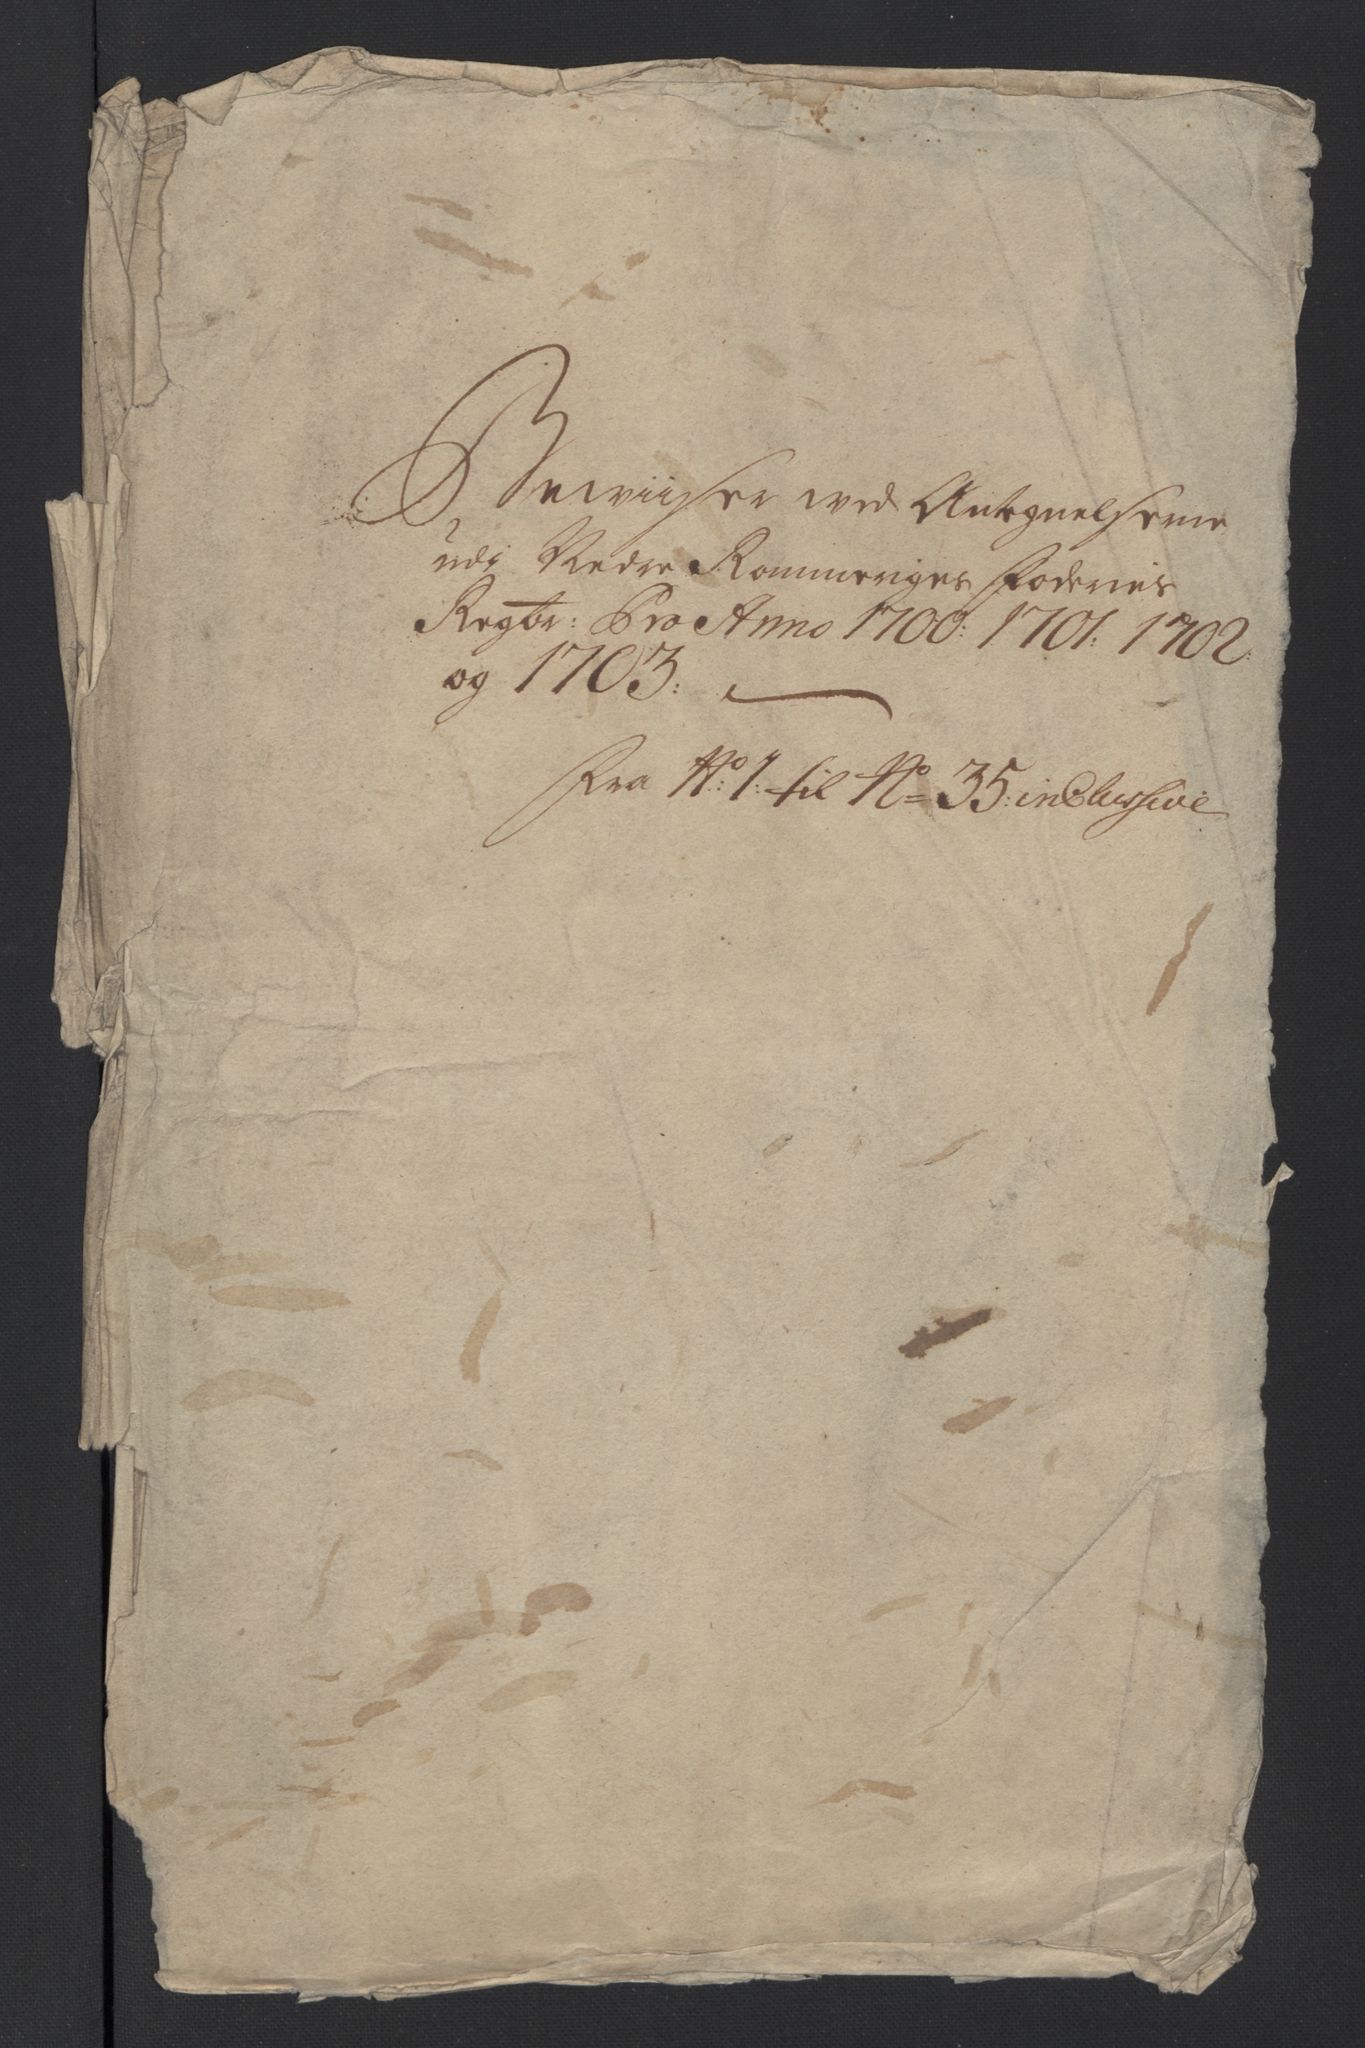 Bewiiser wed Antegnelserne
udi Nedre Rommeriges Foderies
Regbr: Pro Anno 1700: 1701: 1702:
og 1703:
Fra No: 1: til No= 35: inclussive